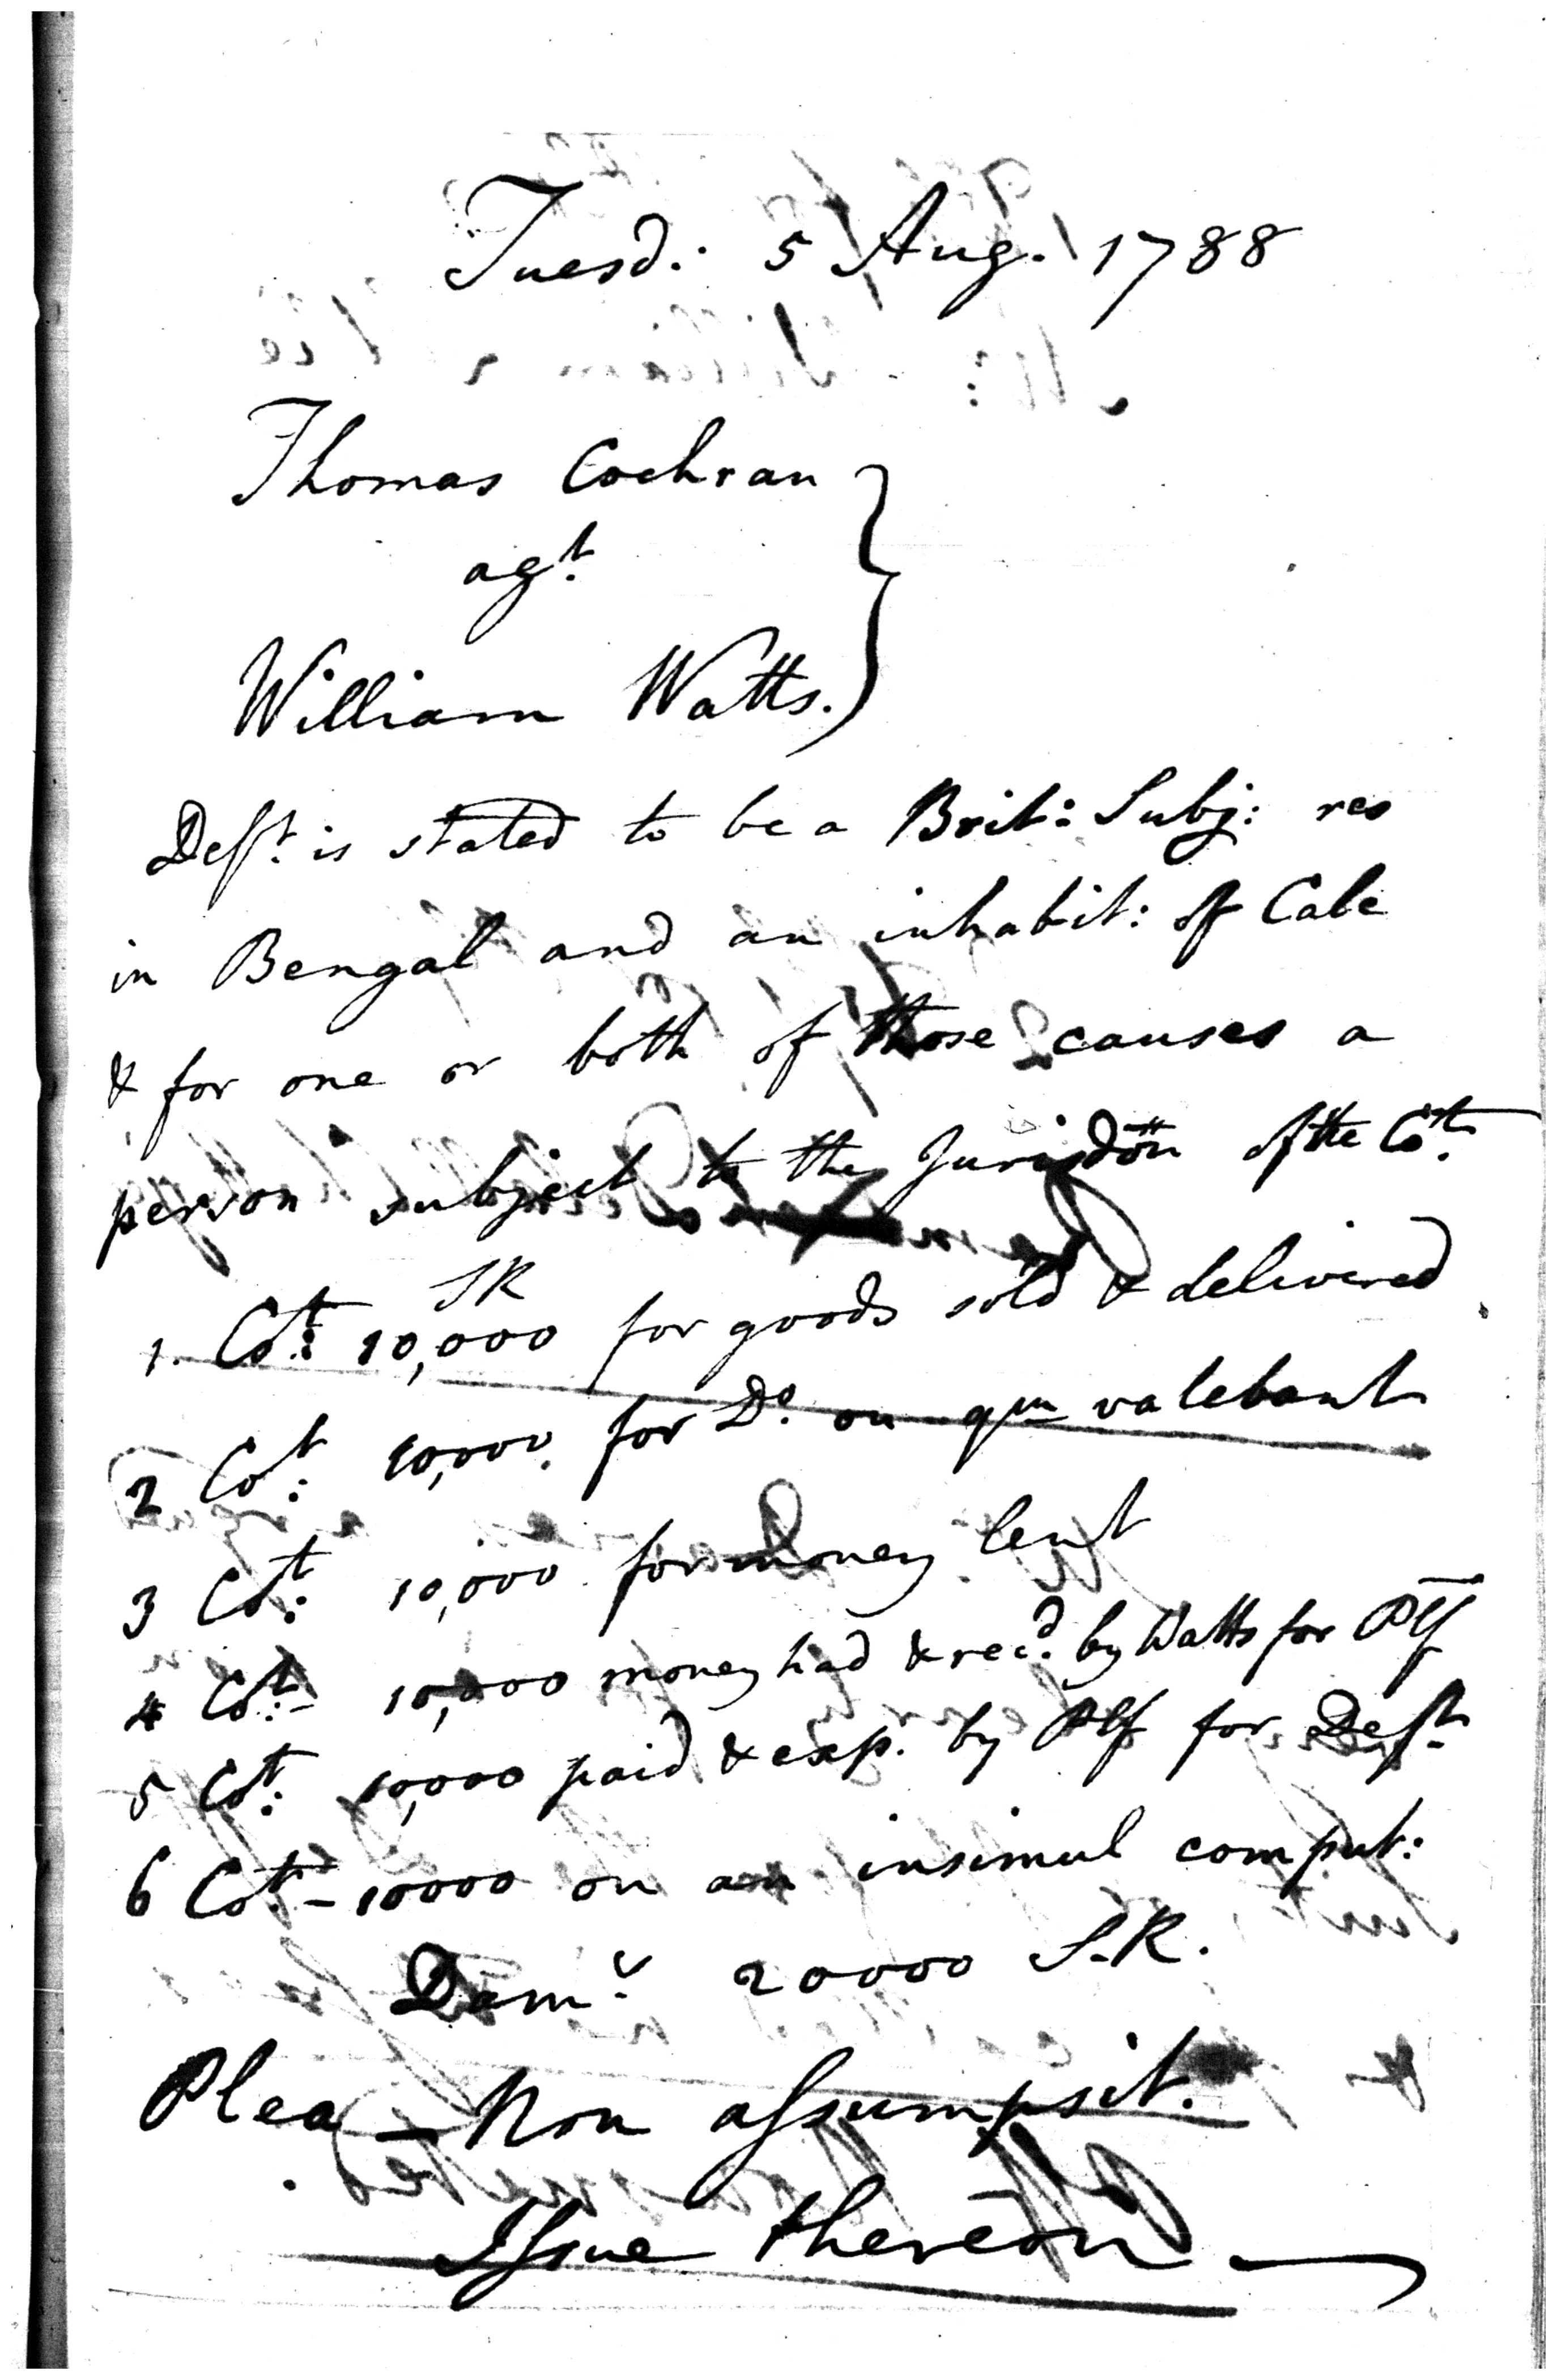 Tuesd: 5 Aug. 1788
Thomas Cochran
agt.
William Watts.
Deft. is stated to be a Brit: Subj: res
in Bengal and an inhabit: of Calc
& for one or both of those causes a
person subject to the Jurisdõn of the Cot.
SR
1. Cot: 10,000 for goods sold & delivered
2 Cot: 10,000. for Do. on qm valebant
3 Cot: 10,000 for money lent
4 Cot:- 10,000 money had & recd. by Watts for Plf
5 Cot: 10,000 paid & exp. by Plf for Deft.
6 Cot:- 10000 on an insimul comput:
Dams. 20000 S.R.
Plea - Non assumpsit.
Issue thereon